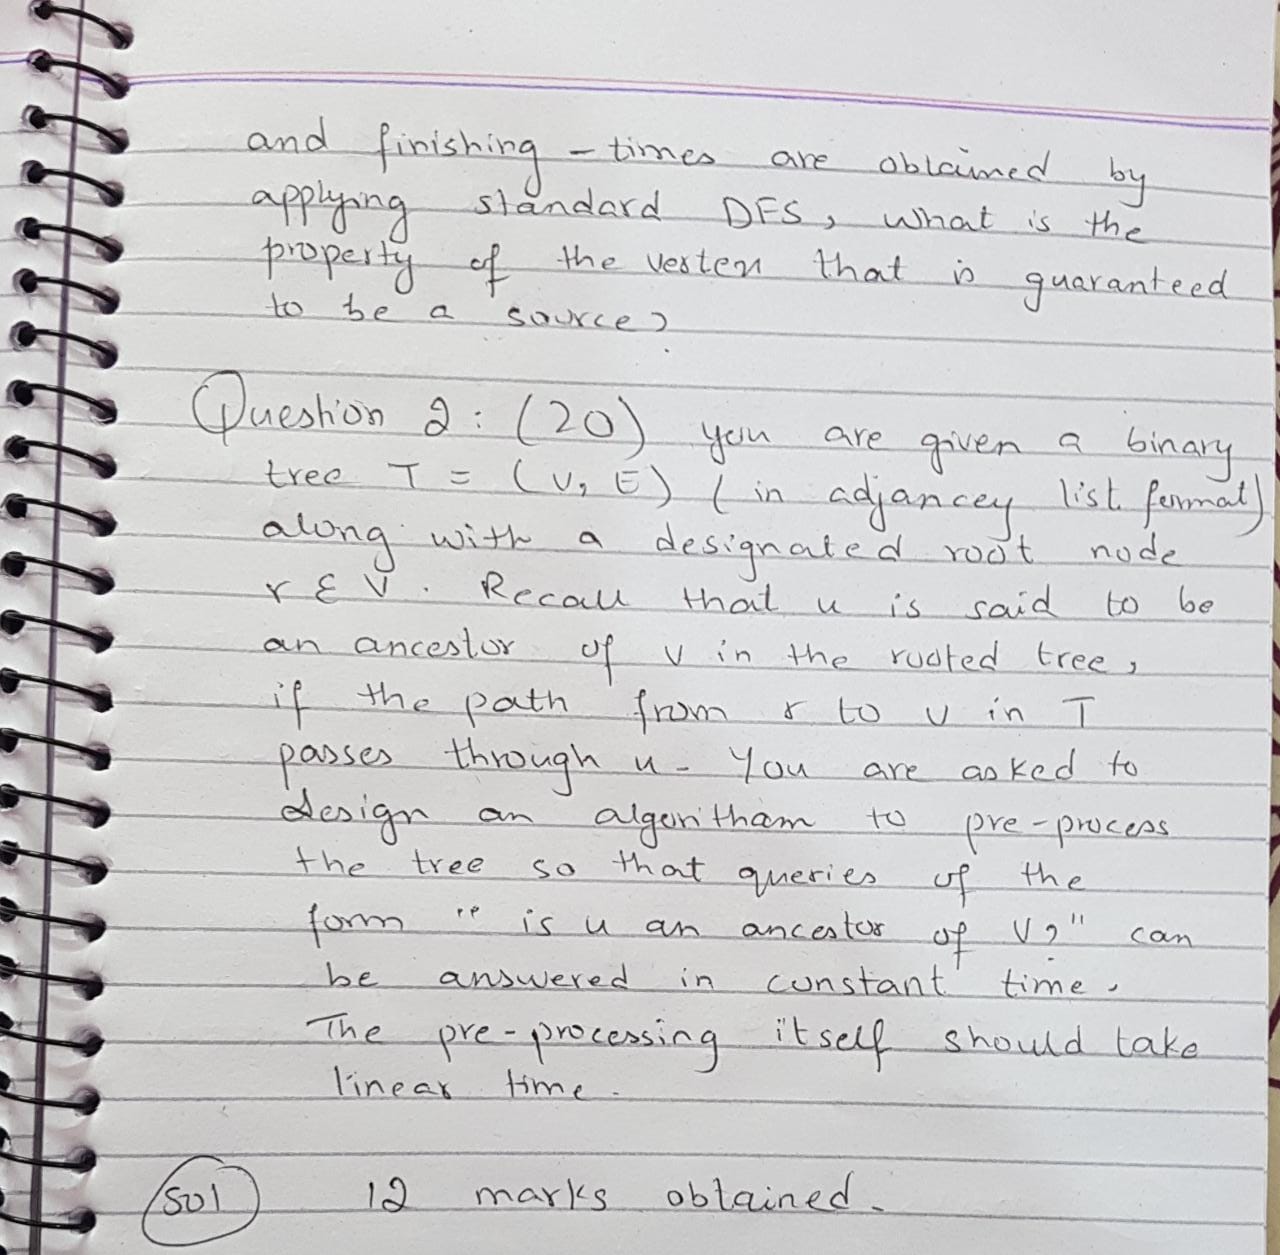 and finishing - times are obtained by
applying standard DFS, what is the
property of the vertex that is guaranteed
to be a source?
Question 2 : (20) you are given a binary
tree T = (V, E) (in adjancey list format)
along with a designated root node
r ε V. Recall that u is said to be
an ancestor of v in the rooted tree,
if the path from r to v in T
passes through u. You are asked to
design an algoritham to pre-process
the tree so that queries of the
form "is u an ancestor of V?" can
be answered in constant time.
The pre-processing itself should take
linear time.
Sol 12 marks obtained.